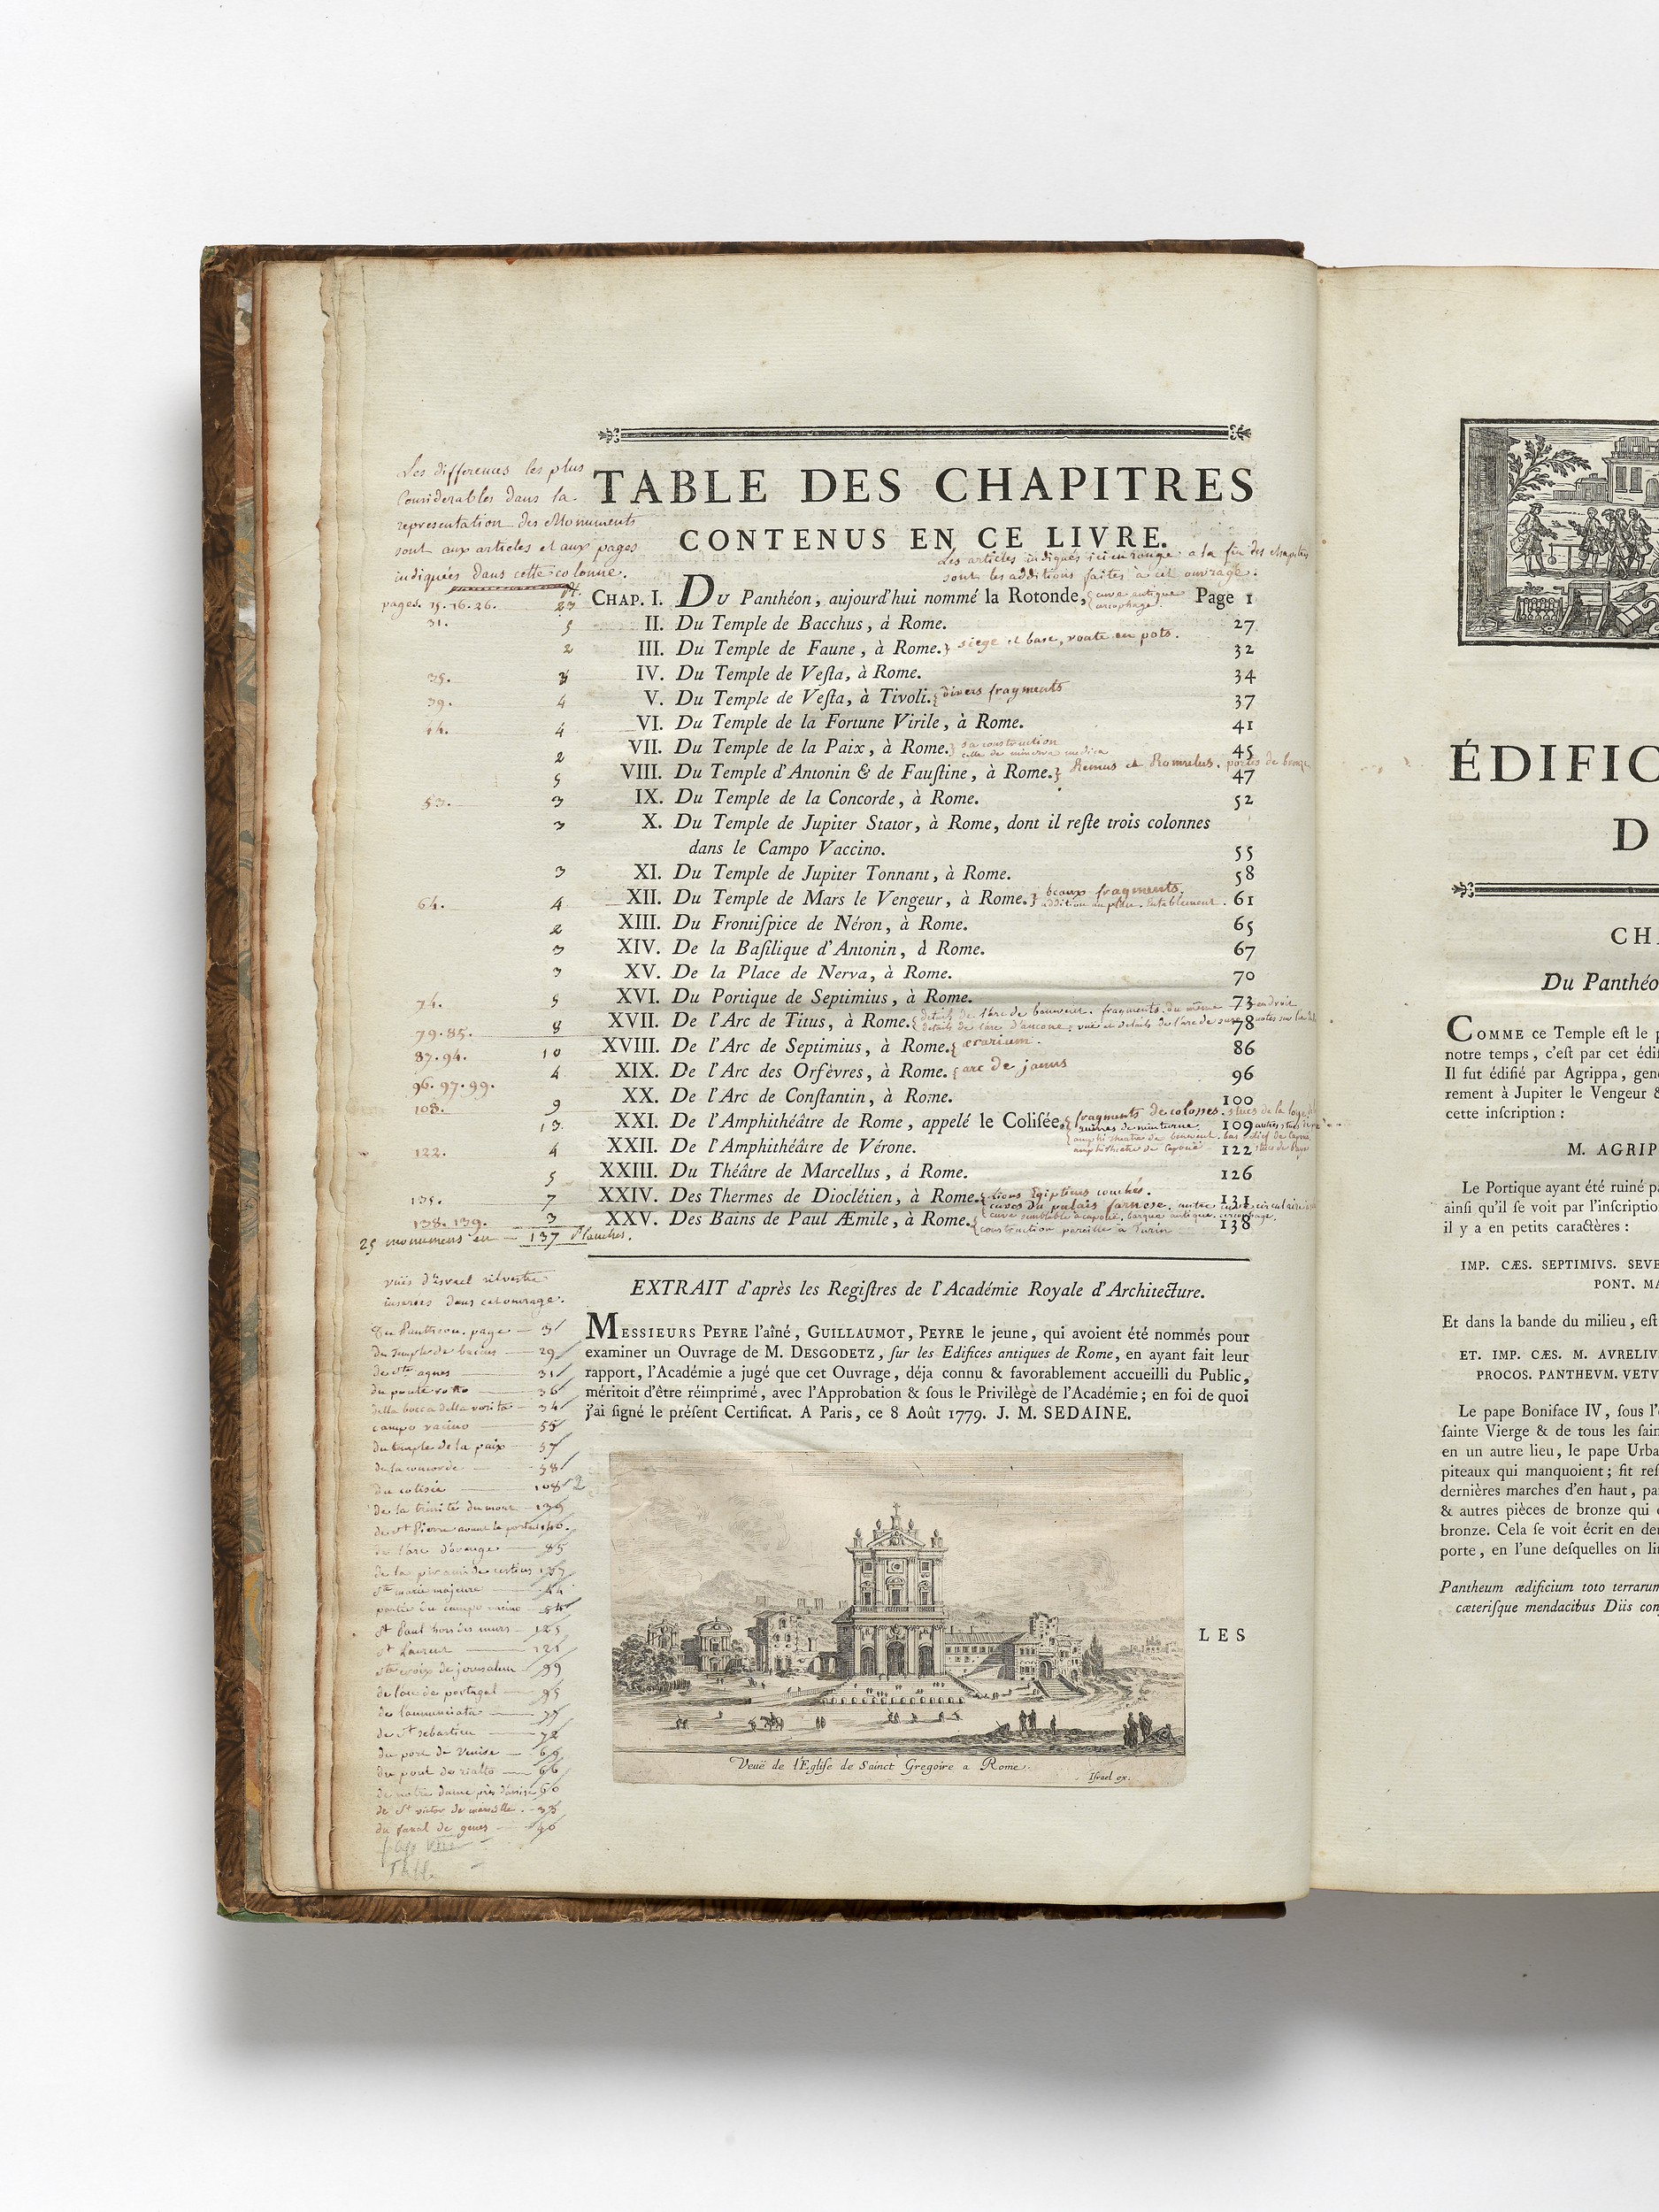 Les differences les plus
Considerables dans la
representation des Monuments
sont aux articles et aux pages
indiquées dans cette colonne.
TABLE DES CHAPITRES
CONTENUS EN CE LIVRE.
Les articles indiqués ici en rouge a la fin des chapitres
sont les additions faites à cet ouvrage.
pages. 15. 16. 26. 23 CHAP. I. DU Panthéon, aujourd'hui nommé la Rotonde, cuve antique Page 1
31. 5 II. Du Temple de Bacchus, à Rome. 27
2 III. Du Temple de Faune, à Rome. siege et base, voute en pots. 32
35. IV. Du Temple de Veſta, à Rome. 34
39. 4 V. Du Temple de Veſta, à Tivoli. divers fragments 37
44. 4 VI. Du Temple de la Fortune Virile, à Rome. 41
2 VII. Du Temple de la Paix, à Rome. sa construction celle de minerva medica 45
5 VIII. Du Temple d'Antonin & de Fauſtine, à Rome. Remus et Romulus. portes de bronze 47
53. 3 IX. Du Temple de la Concorde, à Rome. 52
3 X. Du Temple de Jupiter Stator, à Rome, dont il reſte trois colonnes
dans le Campo Vaccino. 55
3 XI. Du Temple de Jupiter Tonnant, à Rome. 58
64. 4 XII. Du Temple de Mars le Vengeur, à Rome. beaux fragments. addition au plan. Entablement. 61
2 XIII. Du Frontiſpice de Néron, à Rome. 65
3 XIV. De la Baſilique d'Antonin, à Rome. 67
3 XV. De la Place de Nerva, à Rome. 70
74. 5 XVI. Du Portique de Septimius, à Rome. 73
79. 85. 8 XVII. De l'Arc de Titus, à Rome. details de l'arc de benevent. fragments du même endroit details de l'arc d'ancone. vue et details de l'arc de suze 78
87. 94. 10 XVIII. De l'Arc de Septimius, à Rome. œrarium. 86
96. 97. 99. 4 XIX. De l'Arc des Orfèvres, à Rome. arc de janus 96
103. 9 XX. De l'Arc de Conſtantin, à Rome. 100
13. XXI. De l'Amphithéâtre de Rome, appelé le Coliſée. fragments de colosses. ruines de minturne. 109
122. 4 XXII. De l'Amphithéâtre de Vérone. amphitheatre de capoue 122
5 XXIII. Du Théâtre de Marcellus, à Rome. 126
135. 7 XXIV. Des Thermes de Dioclétien, à Rome. lions Egiptiens couchés. cuves du palais farnese. 131
138. 139. 3 XXV. Des Bains de Paul Æmile, à Rome. construction pareille a Turin 138
25 monumens en 137 Planches.
EXTRAIT d'après les Regiſtres de l'Académie Royale d'Architecture.
MESSIEURS PEYRE l'aîné, GUILLAUMOT, PEYRE le jeune, qui avoient été nommés pour
examiner un Ouvrage de M. DESGODETZ, ſur les Edifices antiques de Rome, en ayant fait leur
rapport, l'Académie a jugé que cet Ouvrage, déja connu & favorablement accueilli du Public,
méritoit d'être réimprimé, avec l'Approbation & ſous le Privilège de l'Académie; en foi de quoi
j'ai ſigné le préſent Certificat. A Paris, ce 8 Août 1779. J. M. SEDAINE.
vuës d'israel silvestre
inserées dans cet ouvrage.
du Pantheon. page 3
du temple de bacus 29
de Ste agnes 31
du ponte rotto 36
della bocca della verita 34
campo vacino 55
du temple de la paix 57
de la concorde 58
du colisée 108
de la trinité du mont 139
de St Pierre avant la porte 140.
de l'arc d'orange 85
de la piramide de cestius 137
Ste marie majeure 44
partie du campo vacino 54
St Paul hors des murs 125
St Laurent 121
Ste croix de jerusalem 99
de l'arc de portugal 95
de l'annunciata 77
de St sebastien 72
du port de Venise 69
du pont de rialto 66
de notre dame près d'assise 60
de St victor de marseille. 33
du fanal de genes 40
Veuë de l'Egliſe de Sainct Gregoire a Rome.
Iſrael ex.
LES
ÉDIFIC
D
CHA
Du Panthéo
COMME ce Temple eſt le p
notre temps, c'eſt par cet édif
Il fut édifié par Agrippa, gen
rement à Jupiter le Vengeur &
cette inſcription :
M. AGRIP
Le Portique ayant été ruiné pa
ainſi qu'il ſe voit par l'inſcription
il y a en petits caractères :
IMP. CÆS. SEPTIMIVS. SEVE
PONT. MA
Et dans la bande du milieu, eſt
ET. IMP. CÆS. M. AVRELIV
PROCOS. PANTHEVM. VETV
Le pape Boniface IV, ſous l'e
ſainte Vierge & de tous les ſain
en un autre lieu, le pape Urba
piteaux qui manquoient; fit reſ
dernières marches d'en haut, pa
& autres pièces de bronze qui e
bronze. Cela ſe voit écrit en de
porte, en l'une deſquelles on li
Pantheum ædificium toto terrarum
cæteriſque mendacibus Diis con